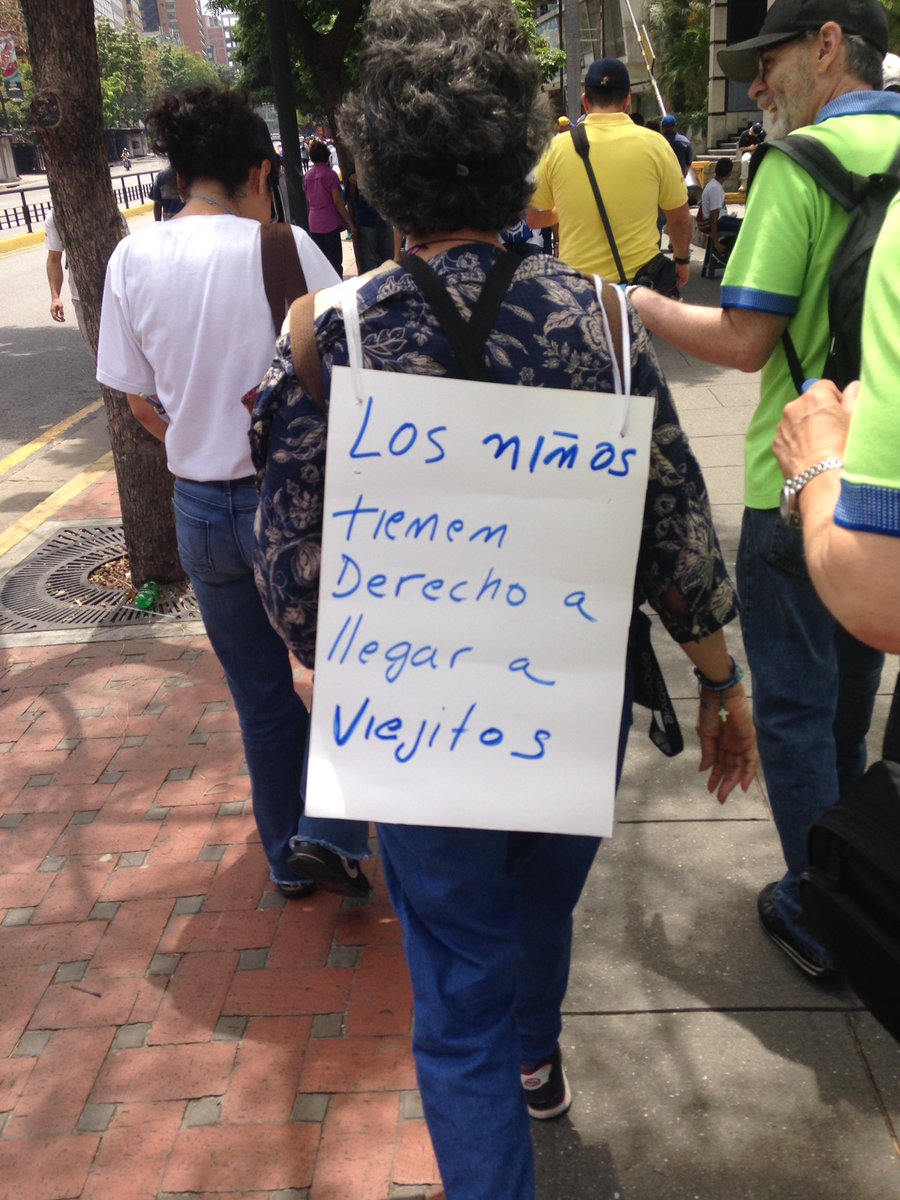 Los niños
tiemem
Derecho a
llegar a
viejitos